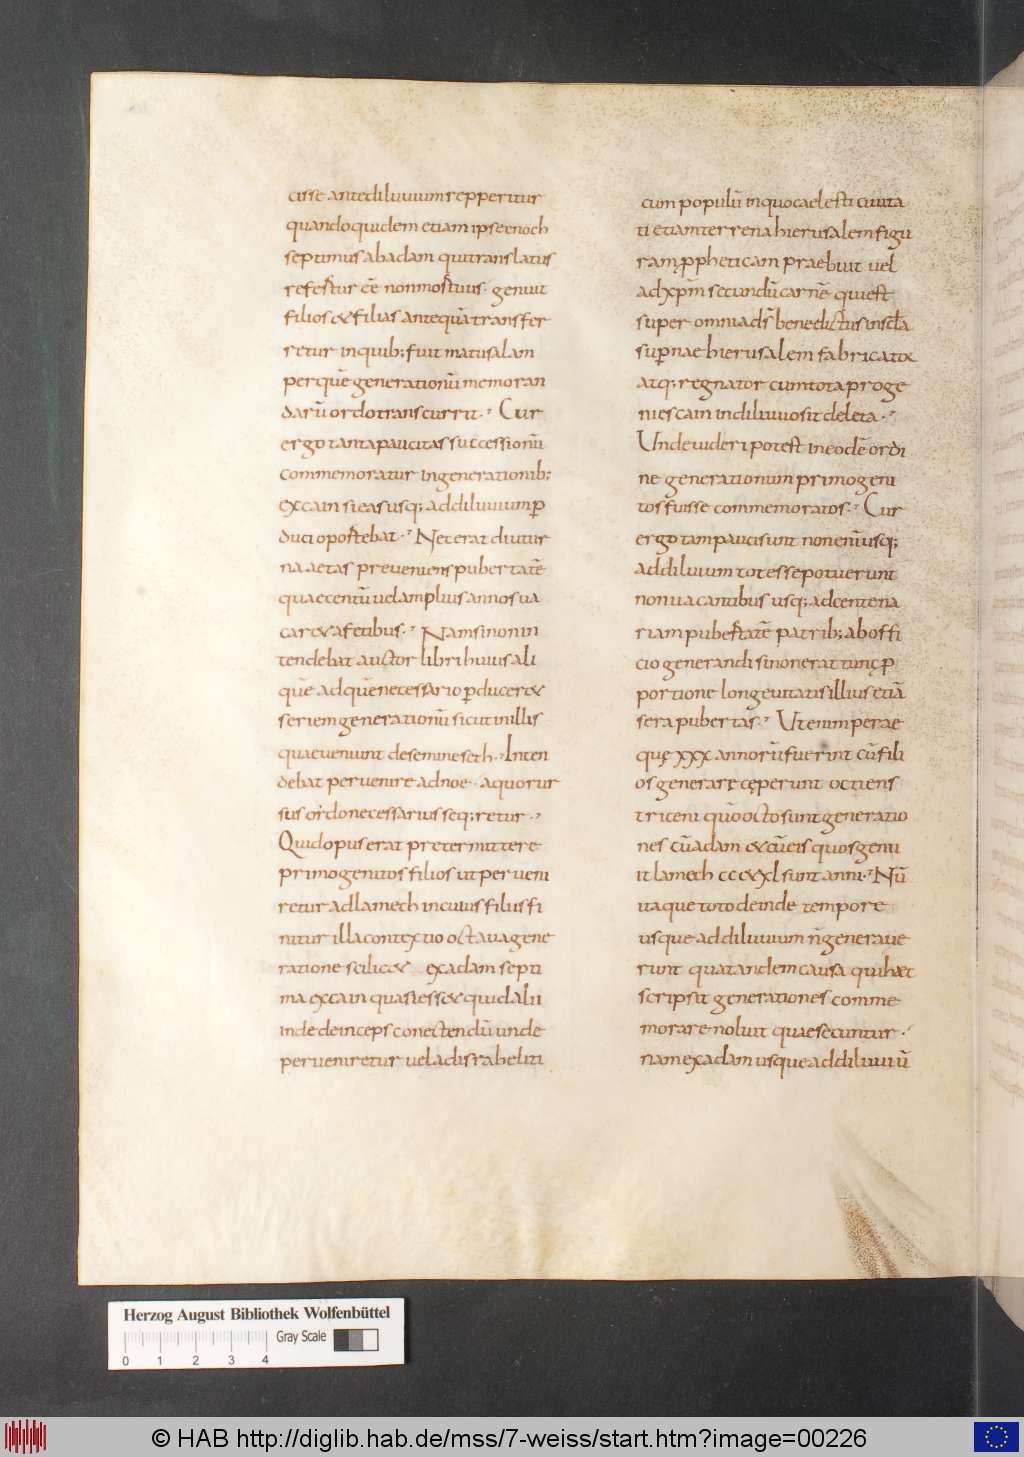 cisse antediluuium repperitur
quandoquidem etiam ipse enoch
septimus abadam qui translatus
refertur cē non mortuus· genuit
filios & filias antequā transfer
retur in quib; fuit matusalam
per quē generationū memoran
darū ordo transcurrit· Cur
ergo tanta paucitas successionū
commemoratur in generationib;
excain si eas usq; addiluuium ꝑ
duci oportebat· Nec erat diutur
na aetas preueniens pubertatē
quae centū uel amplius annos ua
car& afetibus· Nam si non in
tendebat auctor libri huius ali
quē adquē necessario ꝑducer&
seriem generationū sicut inillis
quae ueniunt desemine seth· Inten
debat peruenire adnoe· aquo rur
sus ordo necessarius seq;retur·
Quid opus erat pretermittere
primogenitos filios ut perueni
retur adlamech incuius filiis fi
nitur illa contextio octaua gene
ratione scilic& exadam septi
ma excain quasi ess& quid alii
inde deinceps conectendū unde
perueniretur uel adisraheliti
cum populū inquo caelesti ciuita
ti etiam terrena hierusalem figu
ram ꝓpheticam praebuit uel
adxp̄m secundū carnē qui est
super omnia ds̄ benedictus in scl̄a
suꝑnae hierusalem fabricator
atq; regnator cum tota proge
nies cain indiluuio sit deleta·
Unde uideri potest in eodē ordi
ne generationum primogeni
tos fuisse commemoratos· Cur
ergo tam pauci sunt non enī usq;
addiluuium tot esse potuerunt
non uacantibus usq; adcentena
riam pubertatē patrib; ab offi
cio generandi si non erat tunc ꝓ
portione longeuitatis illius etiā
sera pubertas· Ut enim perae
quę xxx annorū fuerint cū fili
os generarę cęperunt octiens
triceni quō octo sunt generatio
nes cū adam & cū eis quos genu
it lamech cc&xl sunt anni· Nū
itaque toto deinde tempore
usque addiluuium n̄ generaue
runt qua tandem causa qui haec
scripsit generationes comme
morare noluit quae secuntur·
nam exadam usque addiluuiū
Herzog August Bibliothek Wolfenbüttel
Gray Scale
0 1 2 3 4
© HAB http://diglib.hab.de/mss/7-weiss/start.htm?image=00226